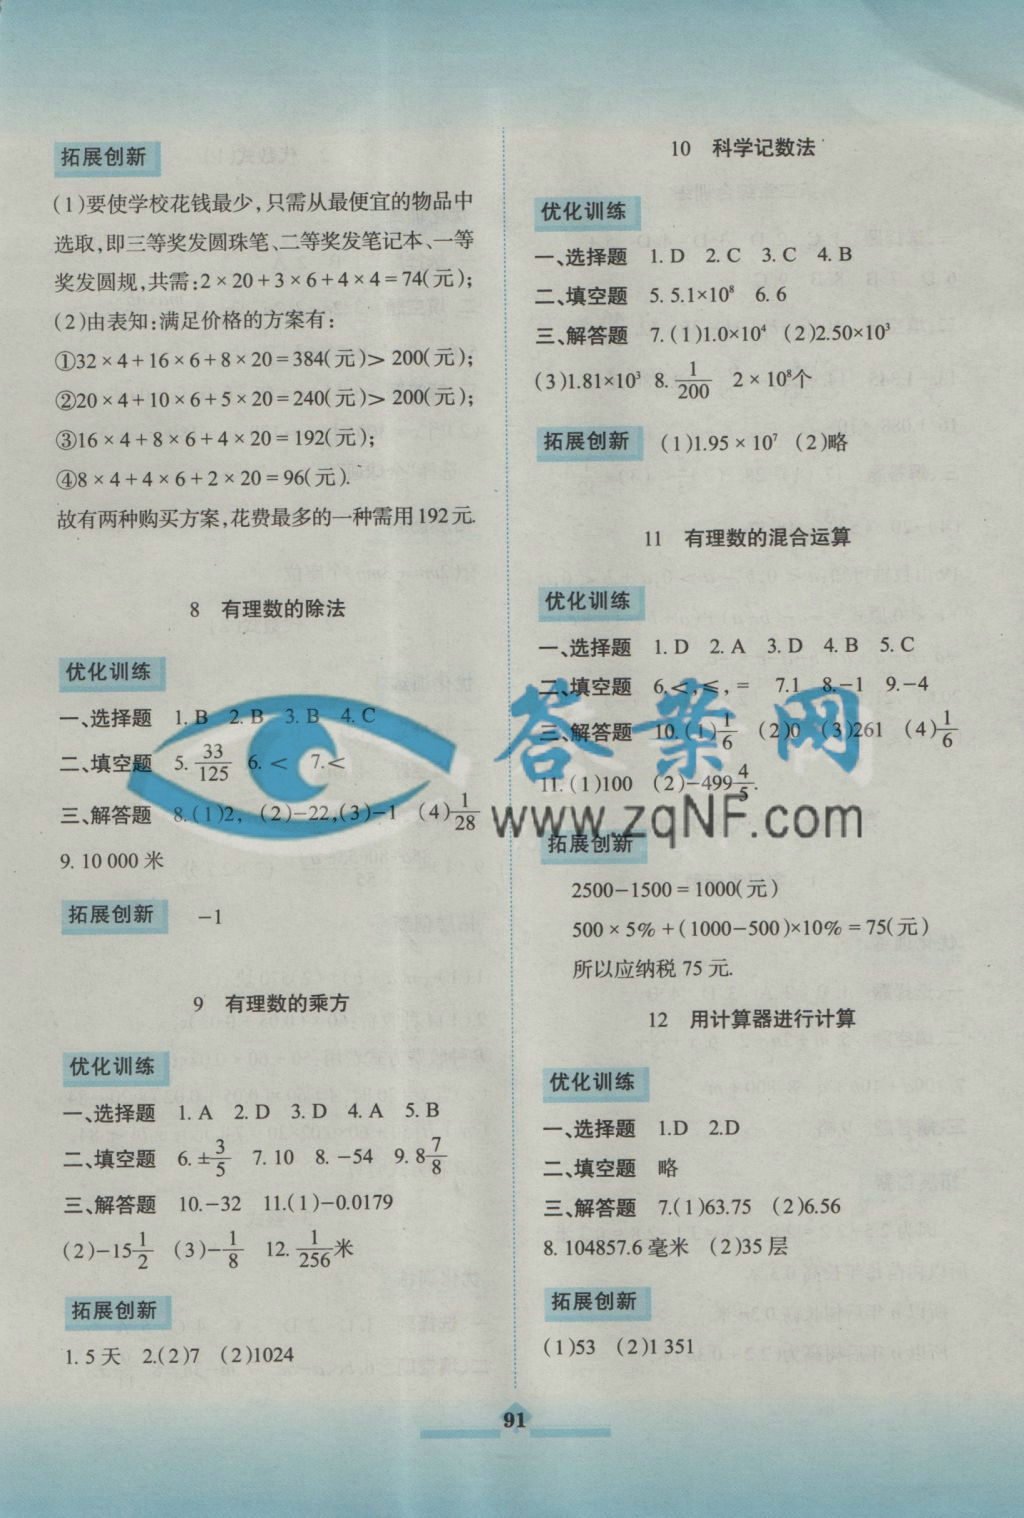 拓展创新
(1)要使学校花钱最少,只需从最便宜的物品中
选取,即三等奖发圆珠笔、二等奖发笔记本、一等
奖发圆规,共需:2×20+3×6+4×4=74(元);
(2)由表知:满足价格的方案有:
①32×4+16×6+8×20=384(元)>200(元);
②20×4+10×6+5×20=240(元)>200(元);
③16×4+8×6+4×20=192(元);
④8×4+4×6+2×20=96(元).
故有两种购买方案,花费最多的一种需用192元.
8 有理数的除法
优化训练
一、选择题 1.B 2.B 3.B 4.C
二、填空题 5.33/125 6.< 7.<
三、解答题 8.(1)2, (2)-22,(3)-1 (4)1/28
9.10 000米
拓展创新 -1
9 有理数的乘方
优化训练
一、选择题 1.A 2.D 3.D 4.A 5.B
二、填空题 6.±3/5 7.10 8.-54 9.8 7/8
三、解答题 10.-32 11.(1)-0.0179
(2)-15 1/2 (3)-1/8 12.1/256米
拓展创新
1.5天 2.(2)7 (2)1024
10 科学记数法
优化训练
一、选择题 1.D 2.C 3.C 4.B
二、填空题 5.5.1×10⁸ 6.6
三、解答题 7.(1)1.0×10⁴ (2)2.50×10³
(3)1.81×10³ 8.1/200 2×10⁸个
拓展创新 (1)1.95×10⁷ (2)略
11 有理数的混合运算
优化训练
一、选择题 1.D 2.A 3.D 4.B 5.C
二、填空题 6.<,≤,= 7.1 8.-1 9.-4
三、解答题 10.(1)1/6 (2)0 (3)261 (4)1/6
11.(1)100 (2)-499 4/5.
拓展创新
2500-1500=1000(元)
500×5%+(1000-500)×10%=75(元)
所以应纳税75元.
12 用计算器进行计算
优化训练
一、选择题 1.D 2.D
二、填空题 略
三、解答题 7.(1)63.75 (2)6.56
8.104857.6毫米 (2)35层
拓展创新
(1)53 (2)1 351
91
答案网
www.zqNF.com